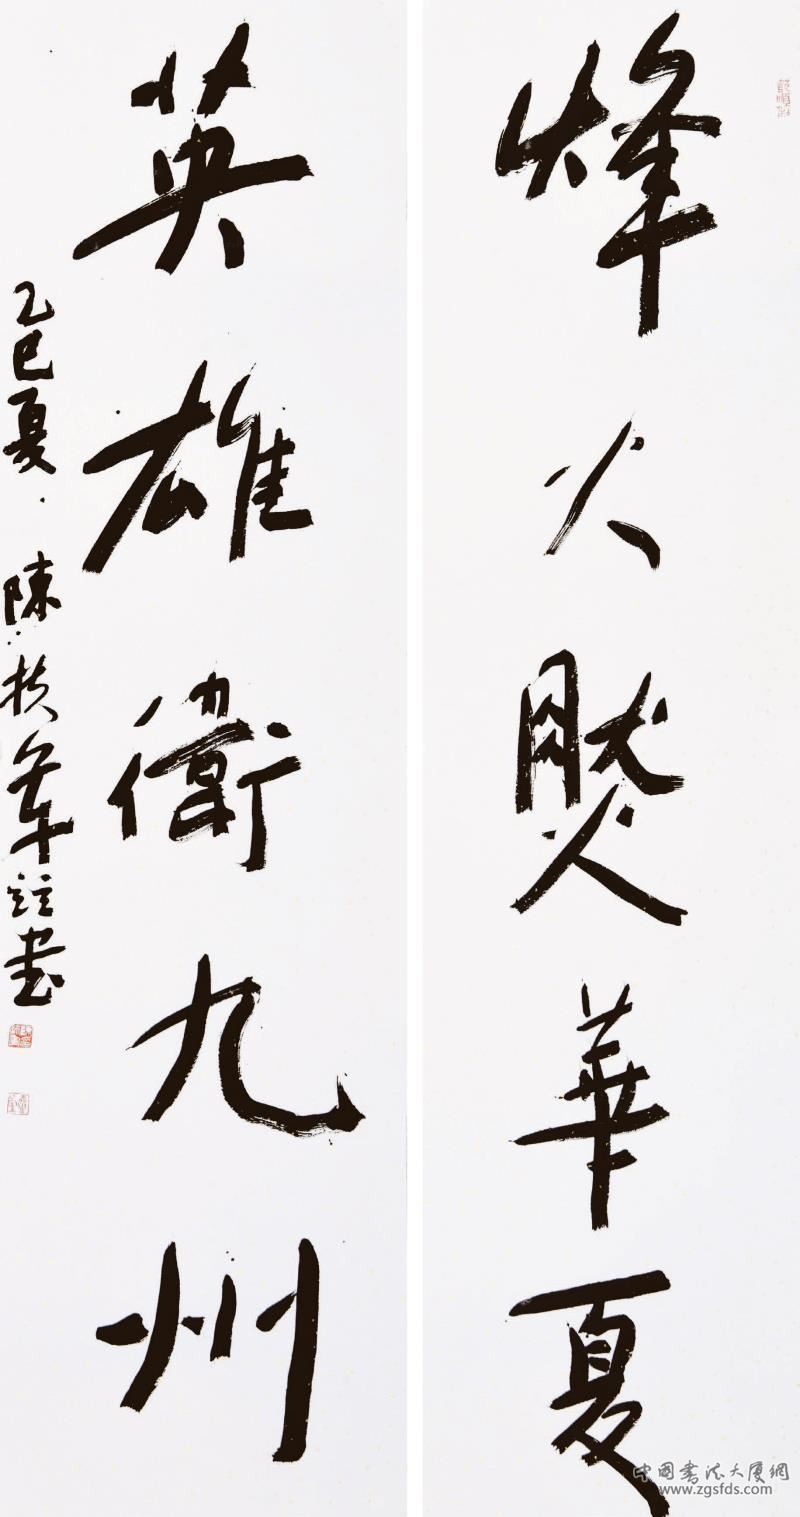 烽火燃華夏
英雄衛九州
乙巳夏
陳扶軍
书
中国書法大廈網
www.zgsfds.com